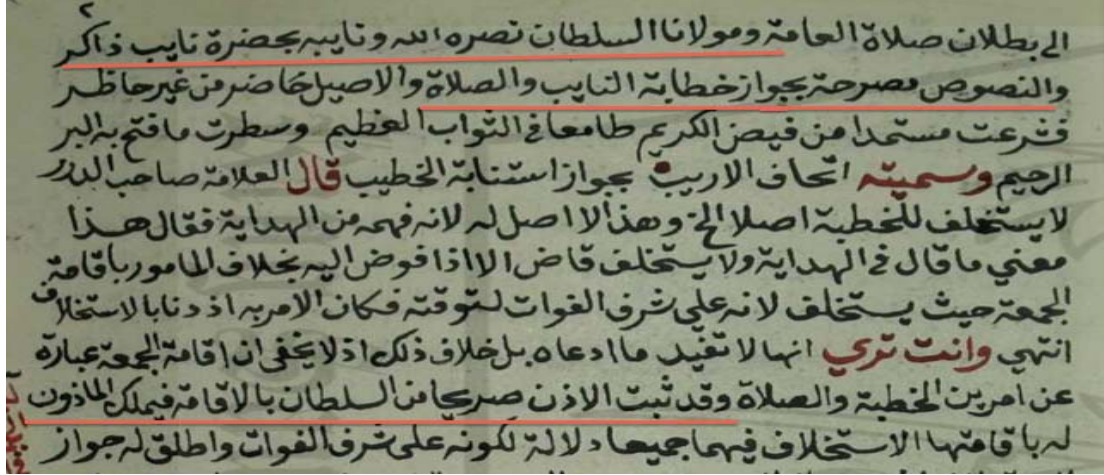 الى بطلان صلاة العامة ومولانا السلطان نصره الله ونايبه بحضرة نايب ذاكر
والنصوص مصرحة بجواز خطابة النايب والصلاة والاصيل حاضر من غير حاظر
فشرعت مستمدا من فيض الكريم طامعا في الثواب العظيم وسطرت ما فتح به البر
الرحيم وسميته اتحاف الاريب بجواز استنابة الخطيب قال العلامة صاحب الدرر
لا يستخلف للخطبة اصلا الخ وهذا لا اصل له لانه فهمه من الهداية فقال هذا
معني ما قال في الهداية ولا يستخلف قاض الا اذا فوض اليه بخلاف المامور باقامة
الجمعة حيث يستخلف لانه على شرف الفوات لتوقته فكان الامر به اذنا بالاستخلاف
انتهى وانت تري انها لا تفيد ما ادعاه بل خلاف ذلك اذ لا يخفى ان اقامة الجمعة عبارة
عن امرين الخطبة والصلاة وقد ثبت الاذن صريحا من السلطان بالاقامة فيملك الماذون
له باقامتها الاستخلاف فيهما جميعا دلالة لكونه على شرف الفوات واطلق له جواز